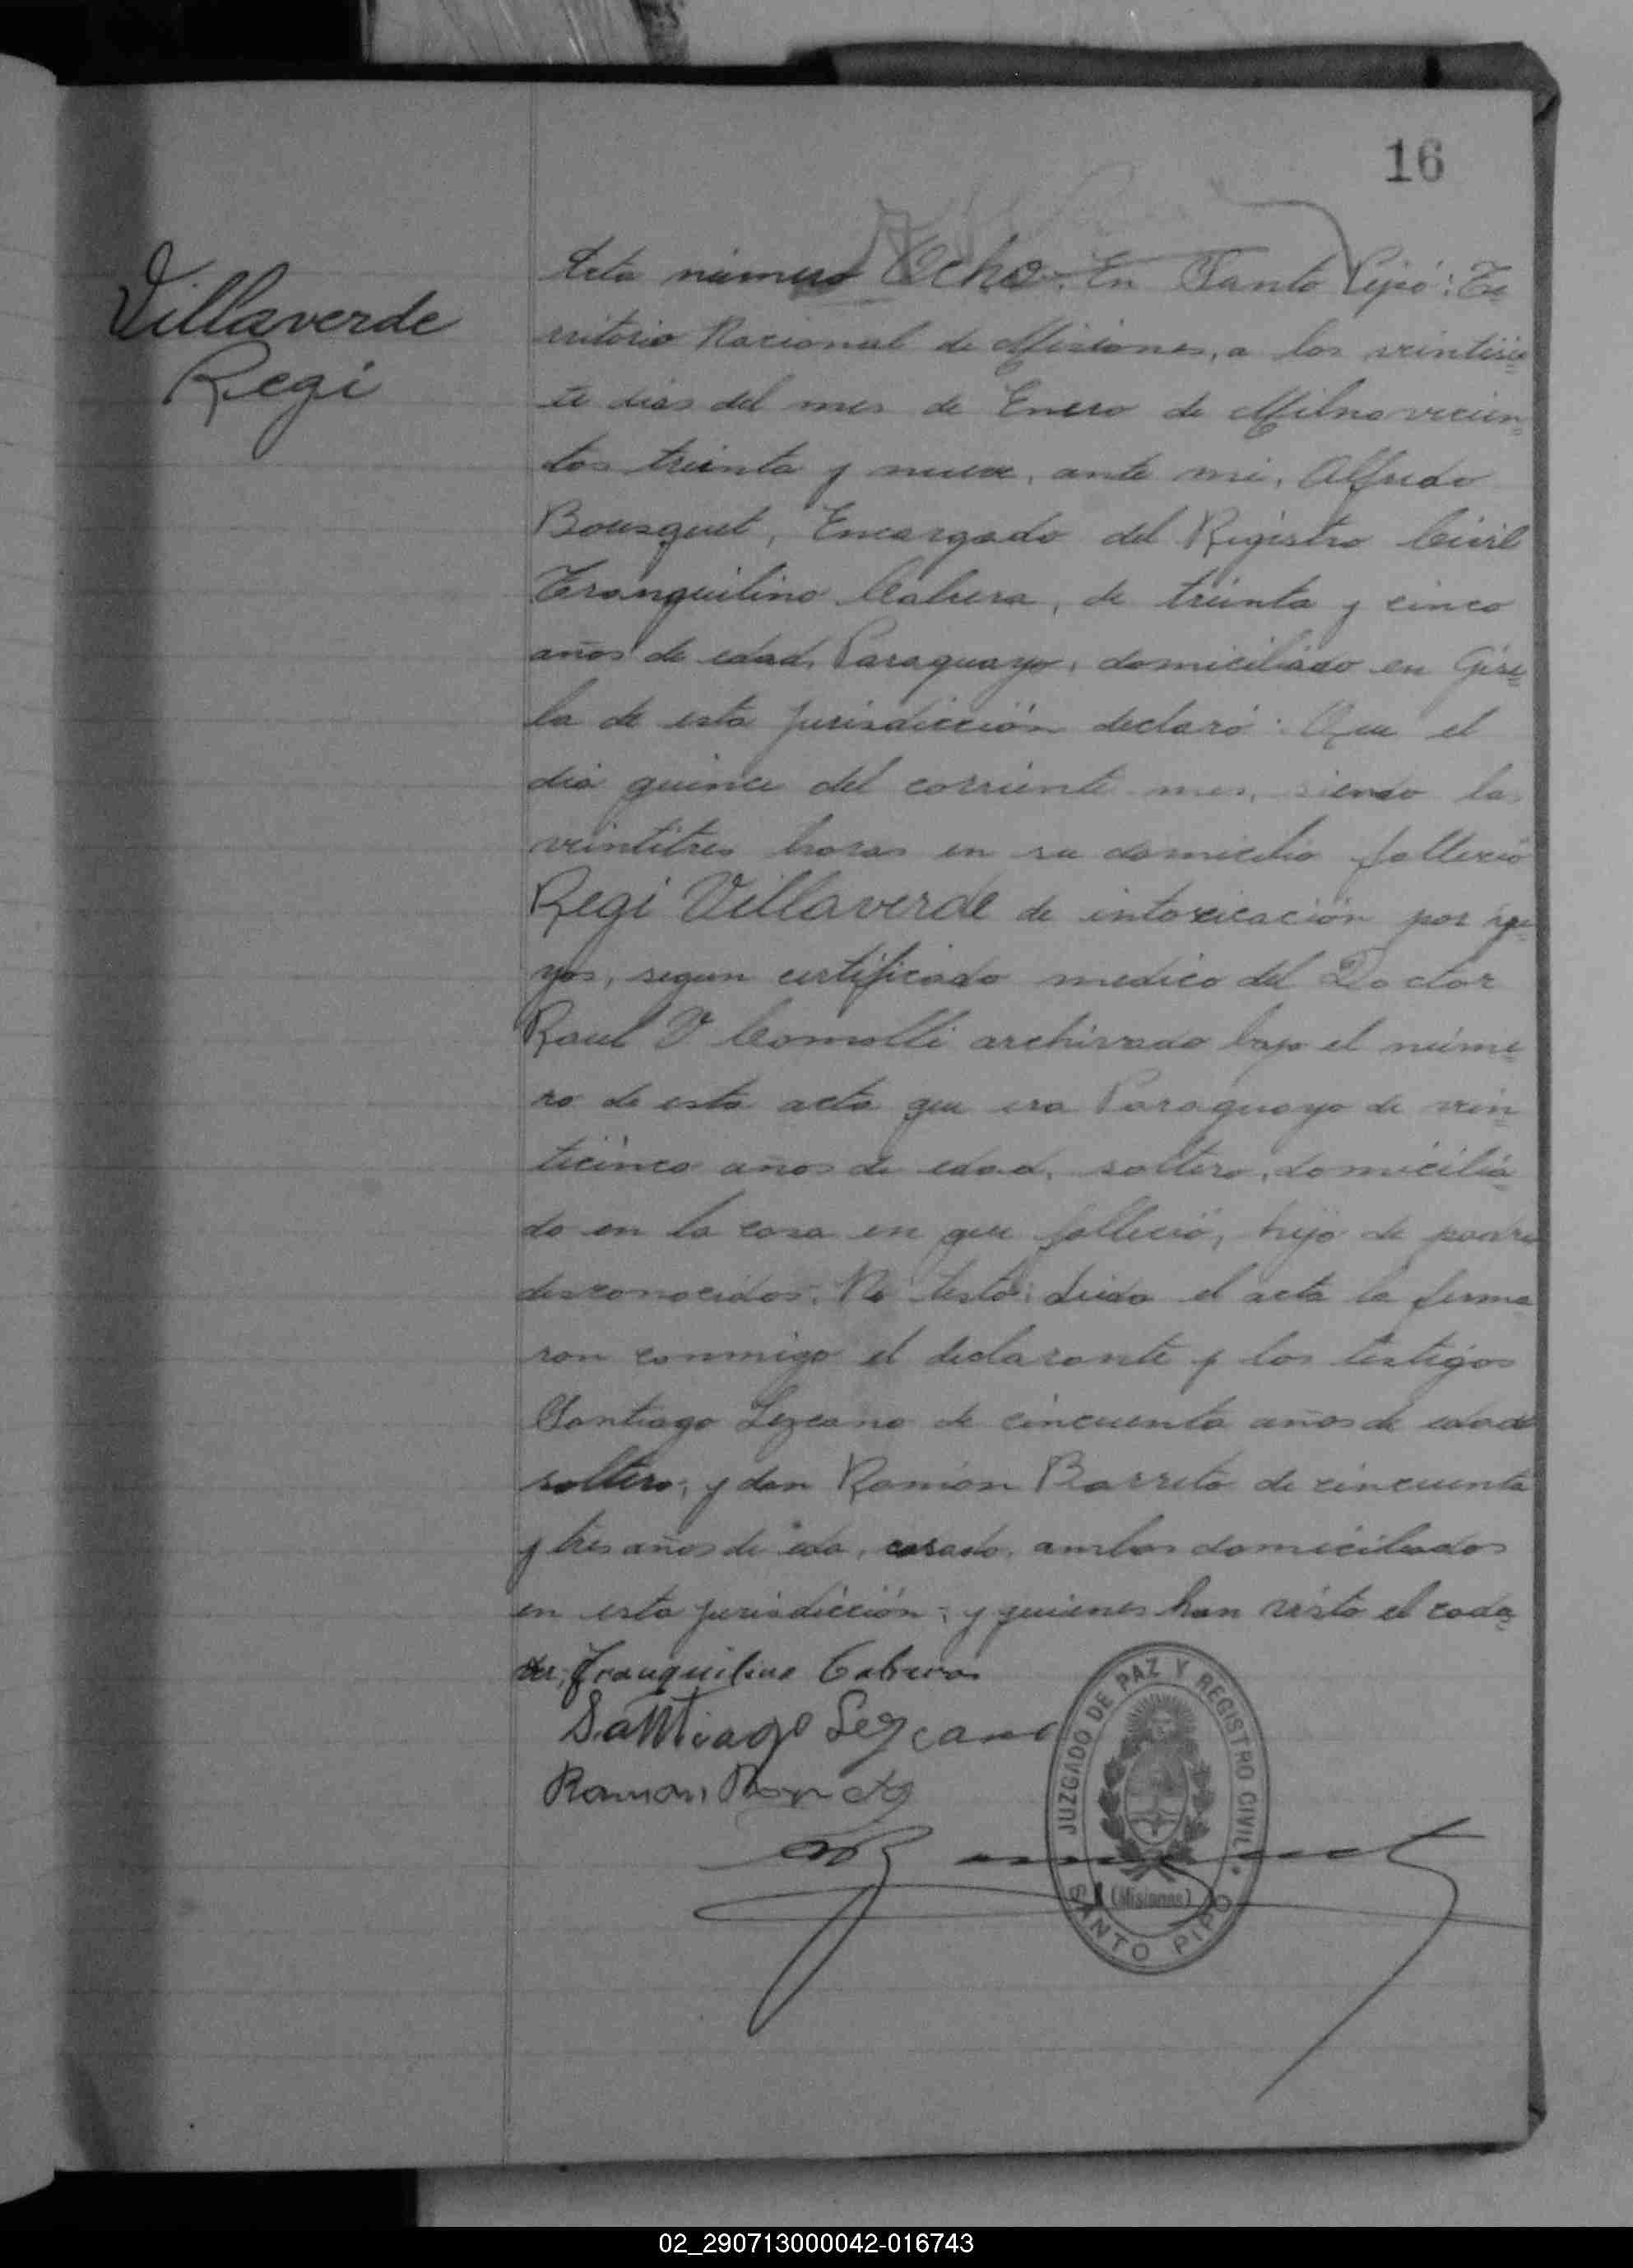 16
Villaverde
Regi
Acta número Ocho. En Santo Pipó: Te=
rritorio Nacional de Misiones, a los veintisie=
te dias del mes de Enero de Milnovecien=
tos treinta y nueve, ante mi, Alfredo
Bousquet, Encargado del Registro Civil
Tranquilino Cabrera, de treinta y cinco
años de edad, Paraguayo, domiciliado en
la de esta jurisdicción declaró: Que el
dia quince del corriente mes, siendo las
veintitres horas en su domicilio falleció
Regi Villaverde de intoxicación por yu=
yos, segun certificado medico del Doctor
Raul V Comolli archivado bajo el núme=
ro de esta acta que era Paraguayo de vein=
ticinco años de edad, soltero, domicilia=
do en la casa en que falleció, hijo de padres
desconocidos. No testó: Leida el acta la firma
ron conmigo el declarante y los testigos
Santiago Lezcano de cincuenta años de edad
soltero; y don Ramón Barreto de cincuenta
y tres años de eda, casado, ambos domiciliados
en esta jurisdicción; y quienes han visto el cada=
ver; Tranquilino Cabrera
Santiago Lezcano
Ramon Barreto
JUZGADO DE PAZ Y REGISTRO CIVIL
(Misiones)
SANTO PIPÓ
02_290713000042-016743